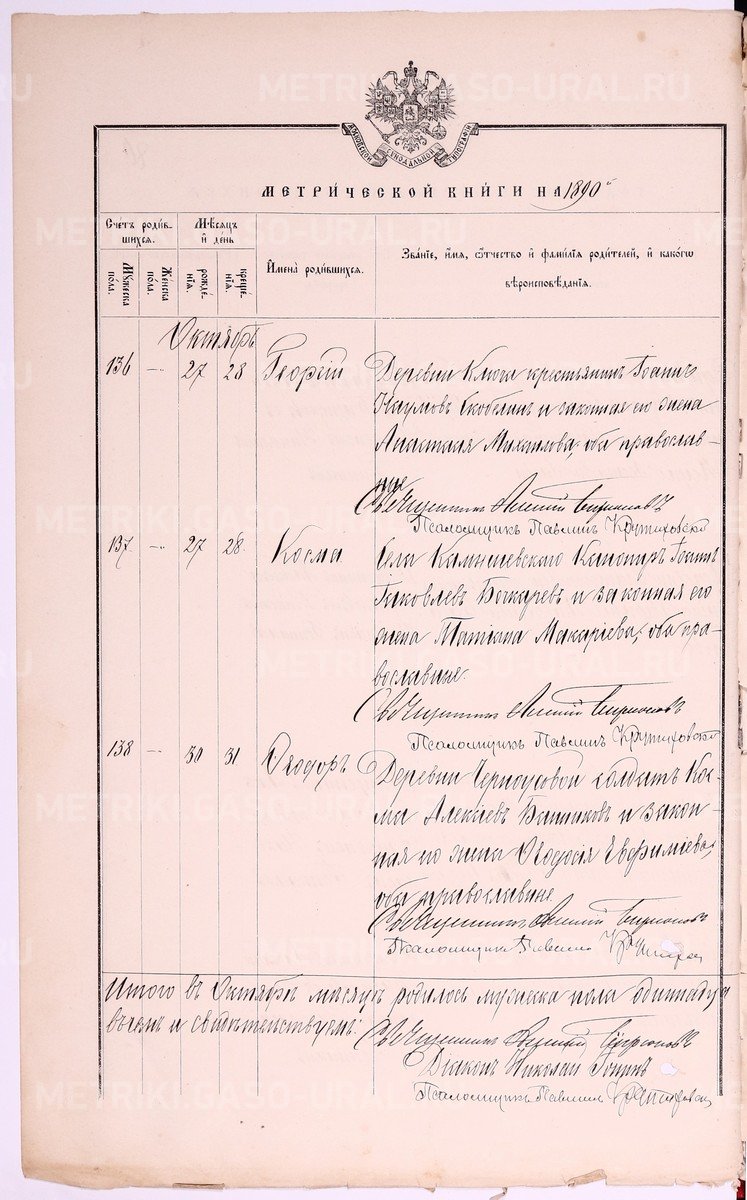 METRIKI.GASO-URAL.RU
МОСКОВСКОЙ СѴНОДАЛЬНОЙ ТИПОГРАФІИ
МЕТРИ́ЧЕСКОЙ КНИ́ГИ НА 1890й
Сче́тъ роди́в-
шихся.
Мѣ́сяцъ
и҆ де́нь
И҆мена̀ роди́вшихся.
Зва́нїе, и҆́мя, ѻ҆́тчество и҆ фамѝлїя роди́телей, и҆ како́гѡ
вѣроисповѣ́данїя.
Мꙋ́жеска по́ла.
Же́нска по́ла.
рожде́-нїя.
креще́-нїя.
Октябрь
136 — 27 28 Георгій Деревни Ключа крестьянинъ Іоаннъ
Наумовъ Скобелинъ и законная его жена
Анастасія Михаилова, оба православ-
ные
Священникъ Алексій Бирюковъ
Псаломщикъ Павлинъ Крутиховской
137 — 27 28. Косма. Села Камышевскаго Канониръ Іоаннъ
Іаковлевъ Бокаревъ и законная его
жена Татіана Макаріева, оба пра-
вославные.
Священникъ Алексій Бирюковъ
Псаломщикъ Павлинъ Крутиховской
138 — 30 31 Ѳеодоръ Деревни Черноусовой солдатъ Кос-
ма Алексіевъ и закон-
ная его жена Ѳеодосія Евфиміева,
оба православные.
Священникъ Алексій Бирюковъ
Псаломщикъ Павлинъ
Итого въ Октябрѣ мѣсяцѣ родилось мужеска пола одиннадца
въ чемъ и свидѣтельствуемъ:
Священникъ Алексій Бирюковъ
Діаконъ Николай
Псаломщикъ Павлинъ